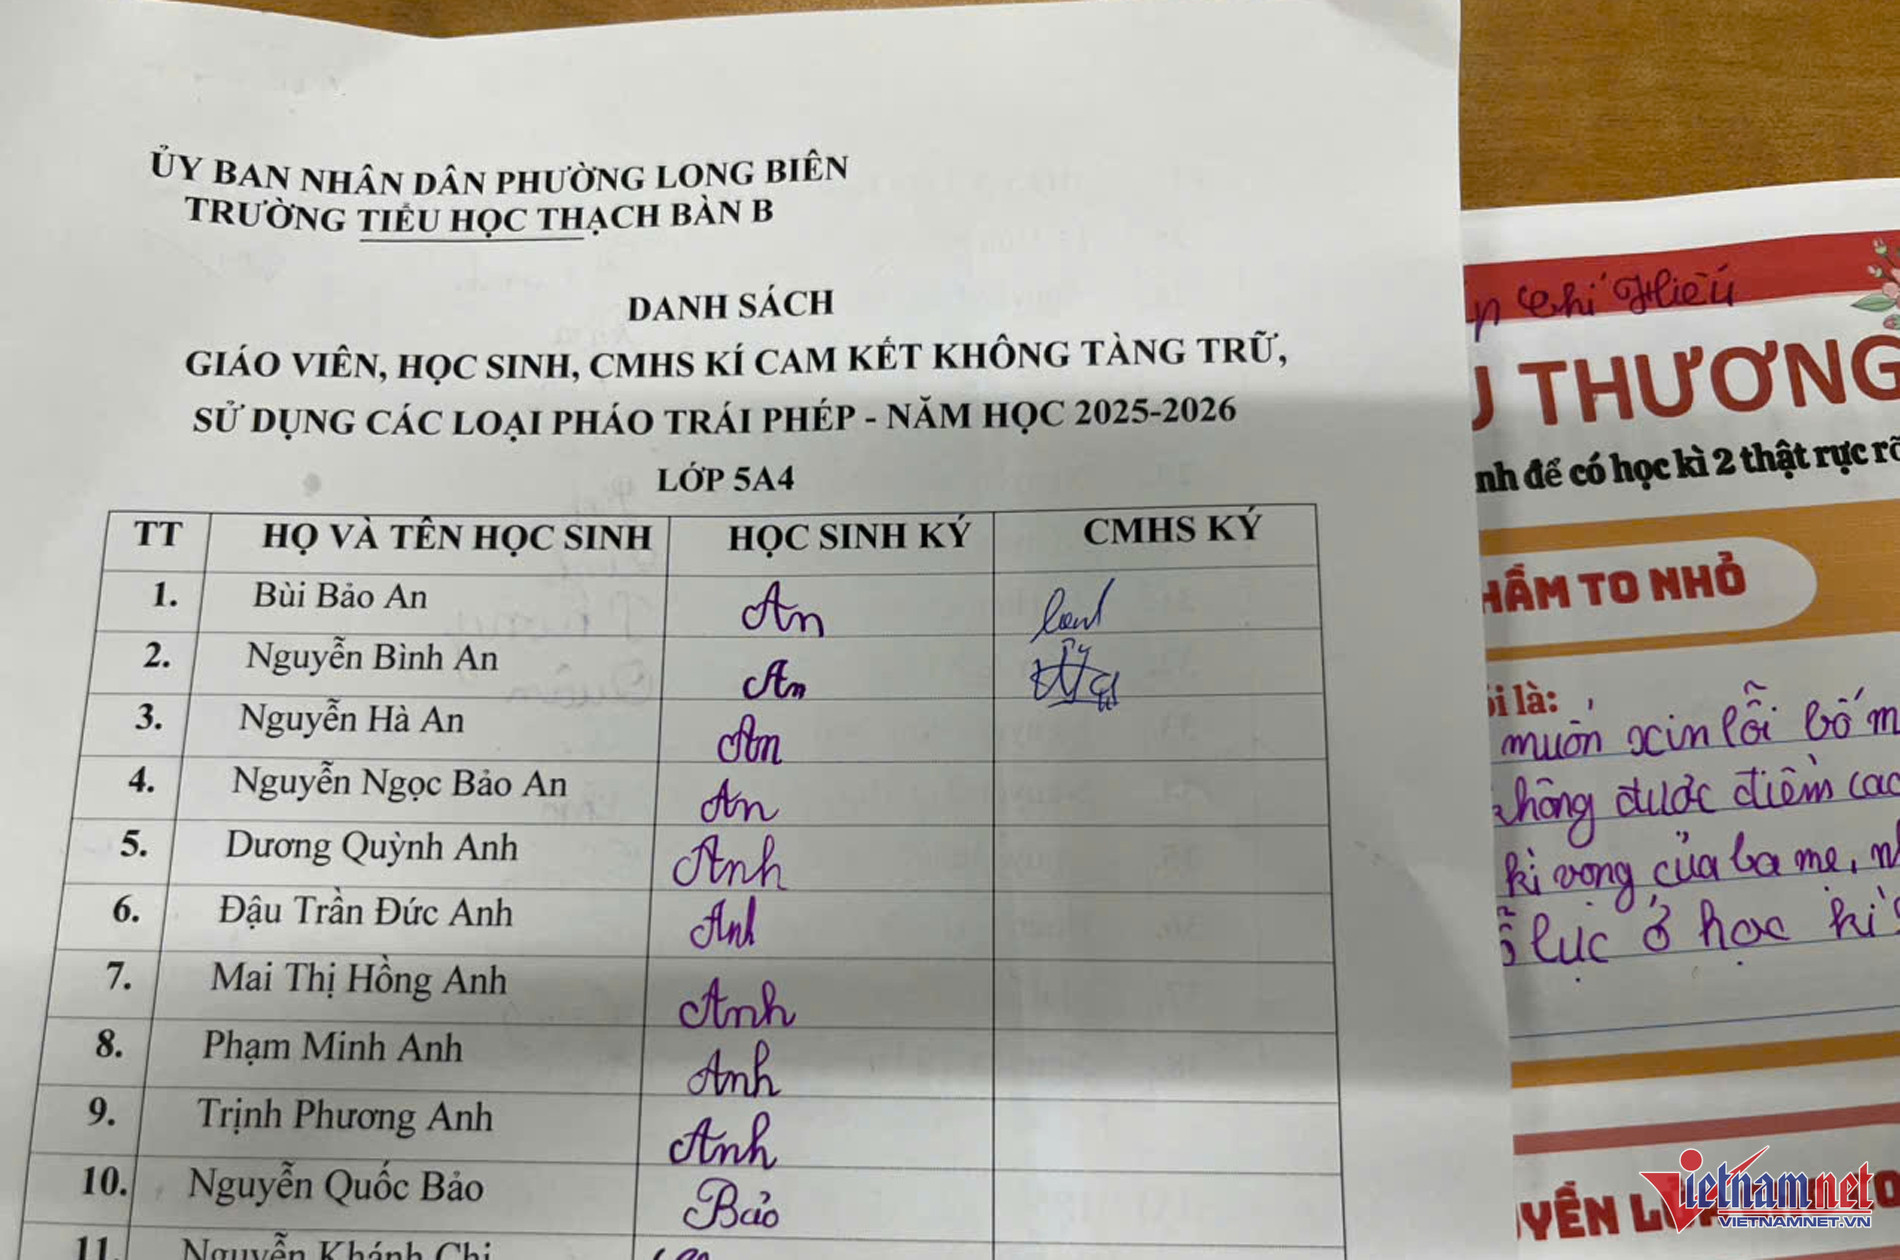 ỦY BAN NHÂN DÂN PHƯỜNG LONG BIÊN
TRƯỜNG TIỂU HỌC THẠCH BÀN B
DANH SÁCH
GIÁO VIÊN, HỌC SINH, CMHS KÍ CAM KẾT KHÔNG TÀNG TRỮ,
SỬ DỤNG CÁC LOẠI PHÁO TRÁI PHÉP - NĂM HỌC 2025-2026
LỚP 5A4
TT HỌ VÀ TÊN HỌC SINH HỌC SINH KÝ CMHS KÝ
1. Bùi Bảo An An
2. Nguyễn Bình An An
3. Nguyễn Hà An An
4. Nguyễn Ngọc Bảo An An
5. Dương Quỳnh Anh Anh
6. Đậu Trần Đức Anh Anh
7. Mai Thị Hồng Anh Anh
8. Phạm Minh Anh Anh
9. Trịnh Phương Anh Anh
10. Nguyễn Quốc Bảo Bảo
11. Nguyễn Khánh Chi
Chí Hiếu
THƯƠNG
để có học kì 2 thật rực
TO NHỎ
là:
muốn xin lỗi bố
không được điểm
kì vọng của ba mẹ,
lực ở học kì
vietnamnet
VIETNAMNET.VN